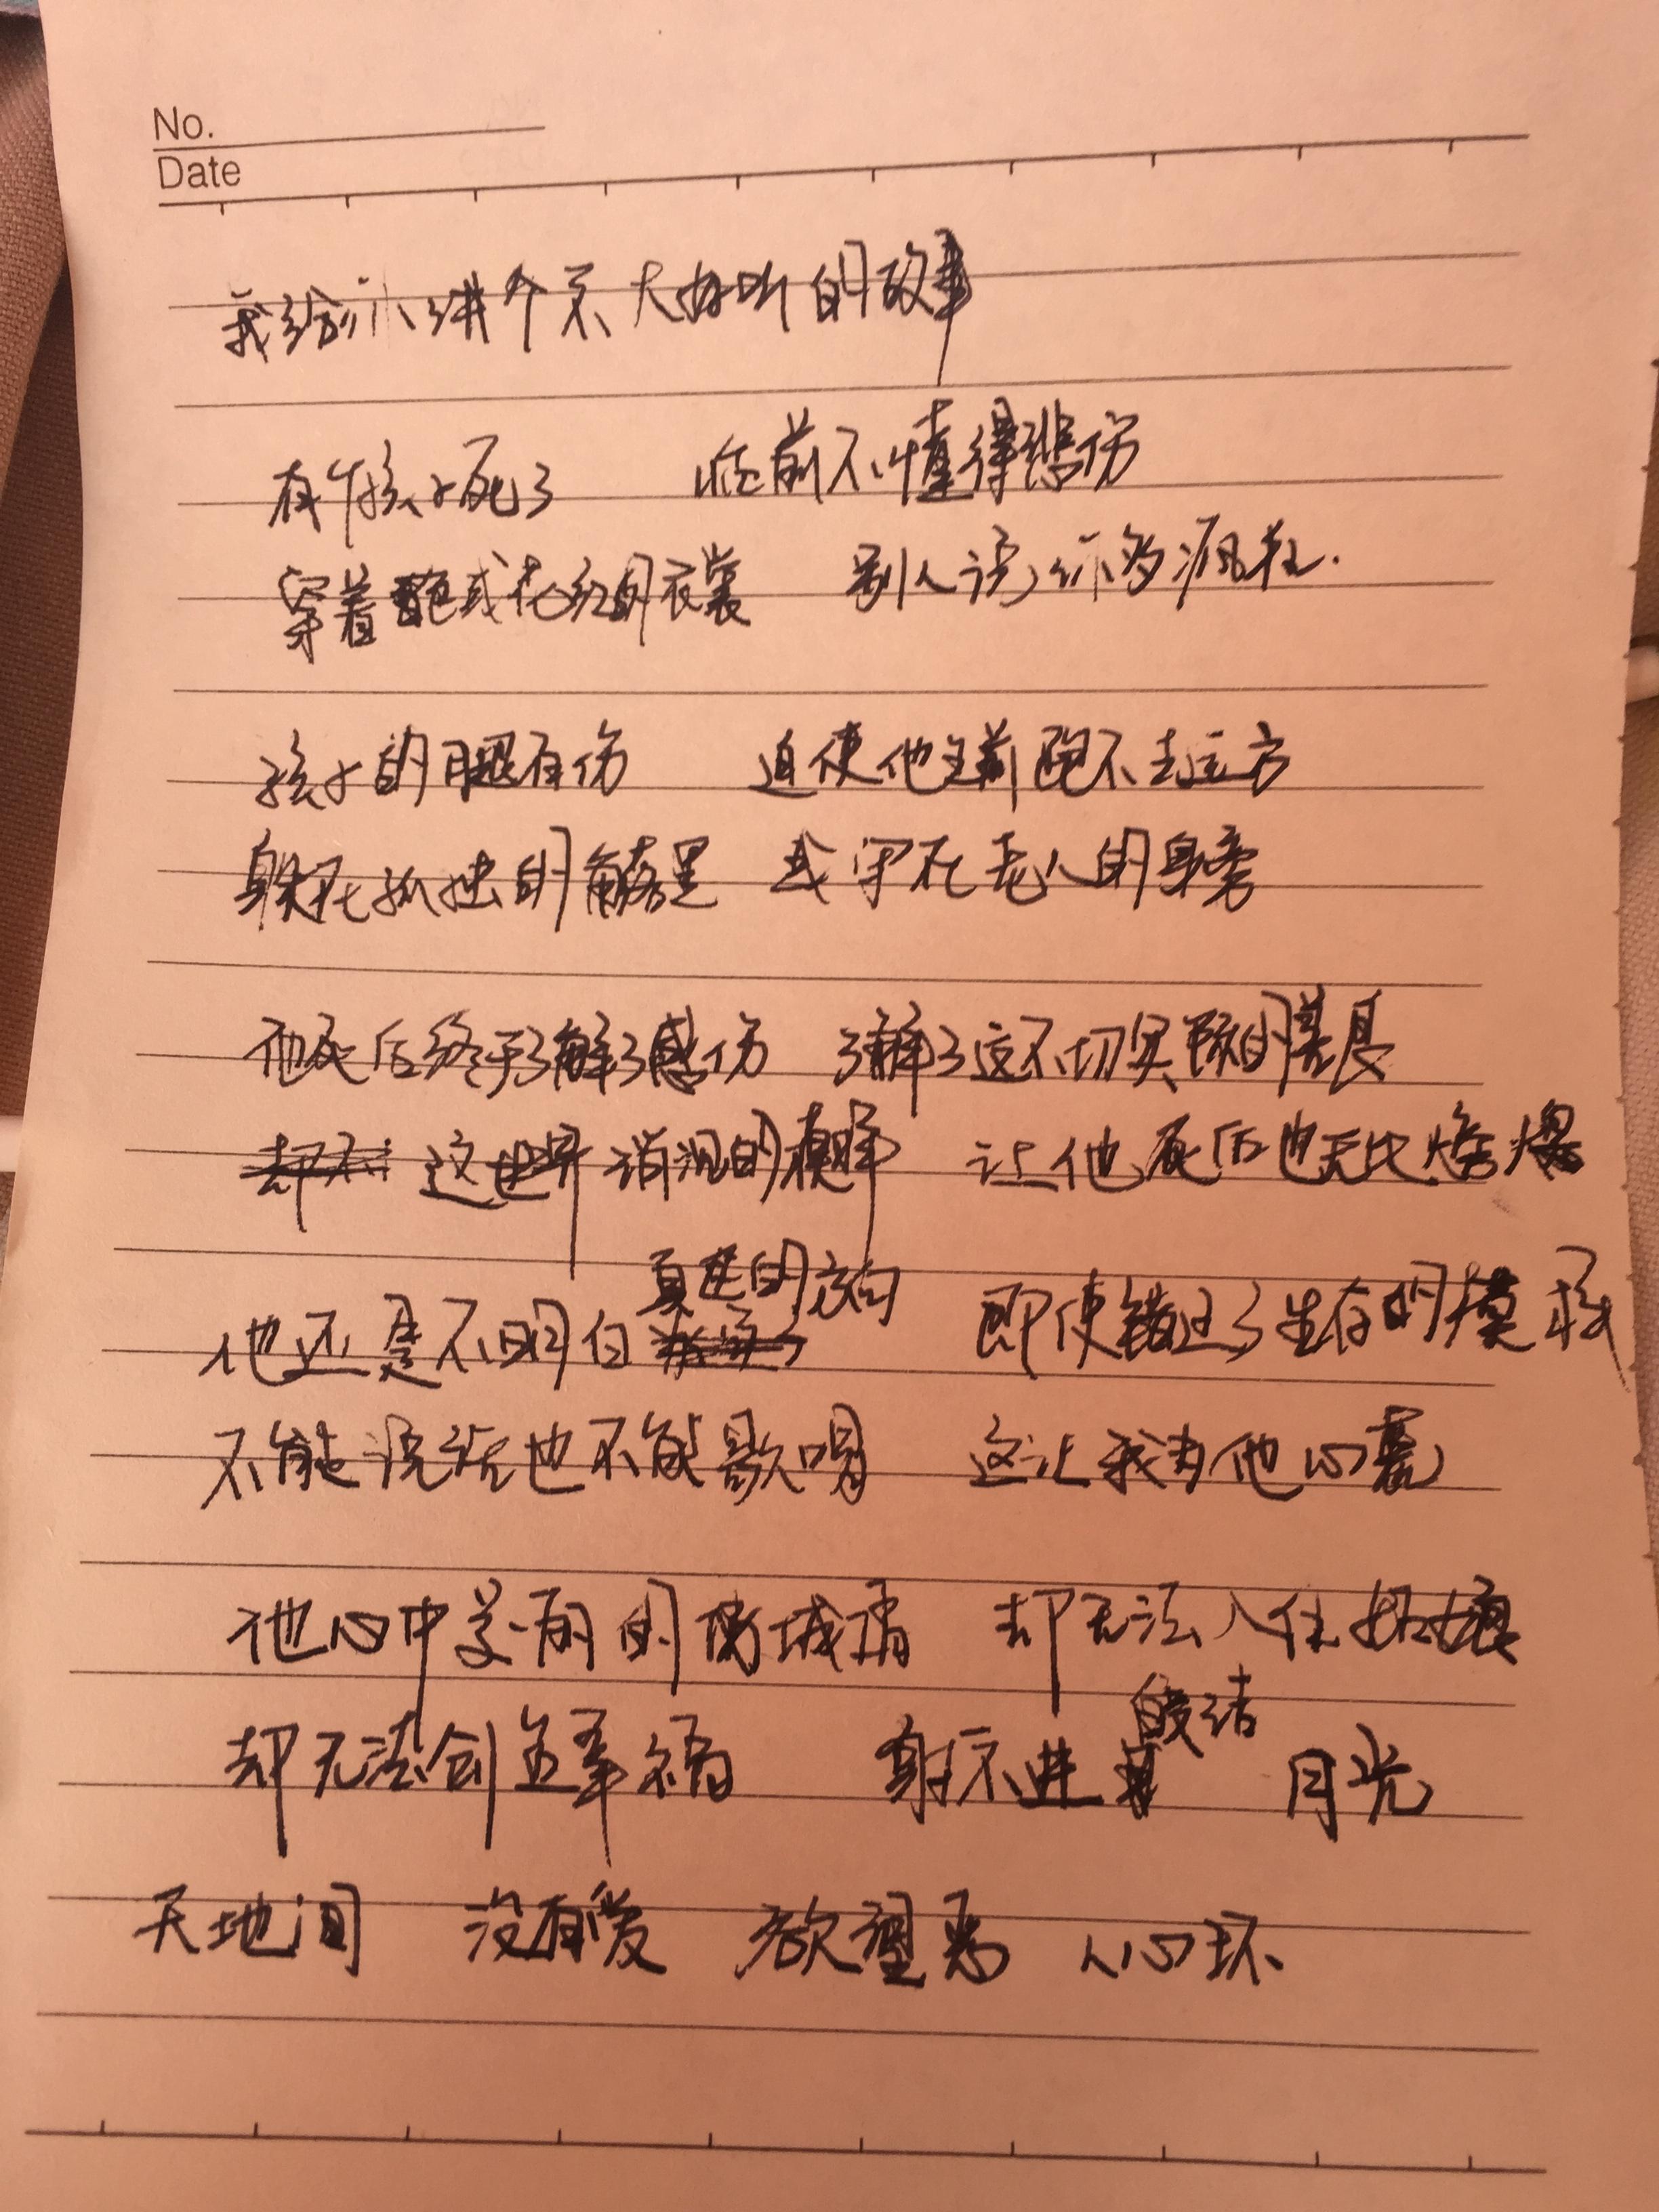 No.
Date
我给你讲个不大好听的故事
有个孩子死了 临前不懂得悲伤
穿着 或花红的衣裳 别人说你多疯狂.
孩子的腿有伤 迫使他生前跑不去远方
躲在孤独的角落里 或守在老人的身旁
他死后终于了解了感伤 了解了这不切实际的漫长
这世界 的 让他死后也无比
真正的方向
他还是不明白 即使错过了生存的模样
不能说话也不能歌唱 这让我为他心慌
他心中美丽的 城 却无法入住姑娘
皎洁
却无法创造幸福 射不进 月光
天地间 没有爱 欲望恶 人心坏